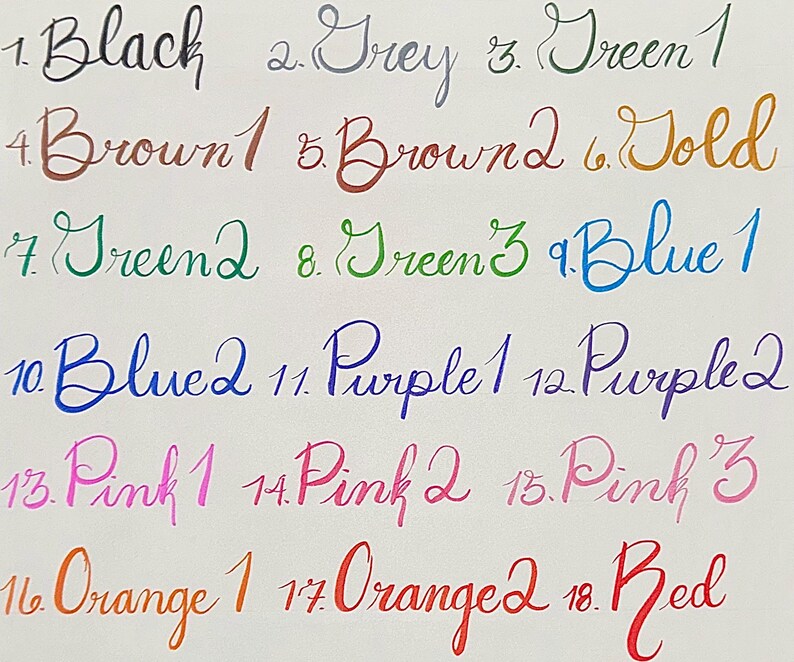 1. Black 2. Grey 3. Green 1
4. Brown 1 5. Brown 2 6. Gold
7. Green 2 8. Green 3 9. Blue 1
10. Blue 2 11. Purple 1 12. Purple 2
13. Pink 1 14. Pink 2 15. Pink 3
16. Orange 1 17. Orange 2 18. Red